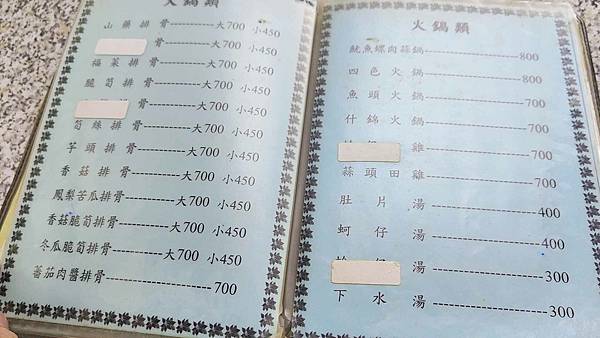 火鍋類
山藥排骨----------大700 小450
骨----------大700 小450
福菜排骨----------大700 小450
脆筍排骨----------大700 小450
骨----------大700 小450
筍絲排骨----------大700 小450
芋頭排骨----------大700 小450
香菇排骨----------大700 小450
鳳梨苦瓜排骨----------大700 小450
香菇脆筍排骨----------大700 小450
冬瓜脆筍排骨----------大700 小450
蕃茄肉醬排骨----------700
火鍋類
魷魚螺肉蒜鍋----------800
四色火鍋----------800
魚頭火鍋----------700
什錦火鍋----------700
雞----------700
蒜頭田雞----------700
肚片湯----------400
蚵仔湯----------400
湯----------300
下水湯----------300